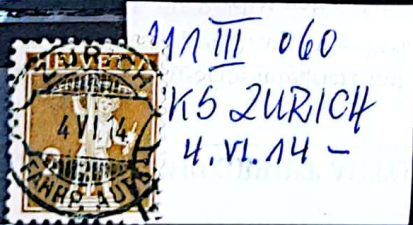 HELVETIA
4 VI 4
FAHRP. AUFG
111 III 060
KS ZURICH
4. VI. 14 -